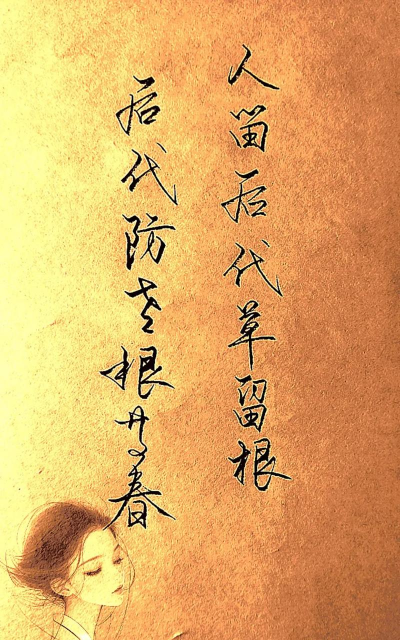 人留后代草留根
后代防老根防春